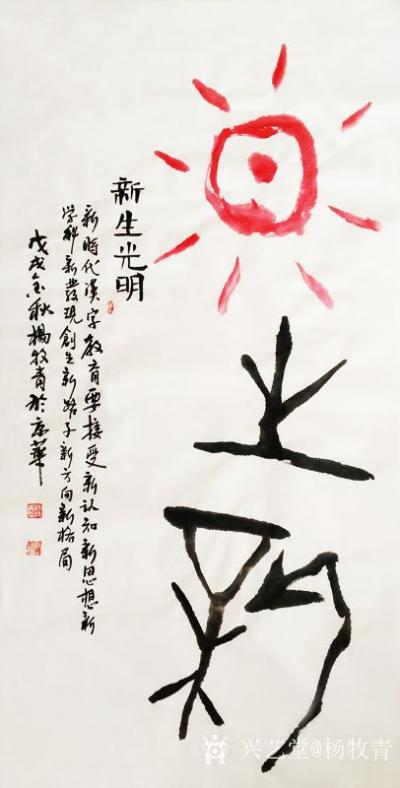 新生光明
新時代漢字教育要接受新认知新思想新
学科新發現創生新路子新方向新格局
戊戌金秋楊牧青於京華
兴艺堂@杨牧青